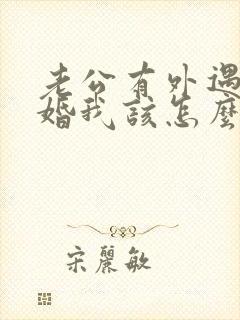 老公有外遇
婚我該怎麼
宋麗敏